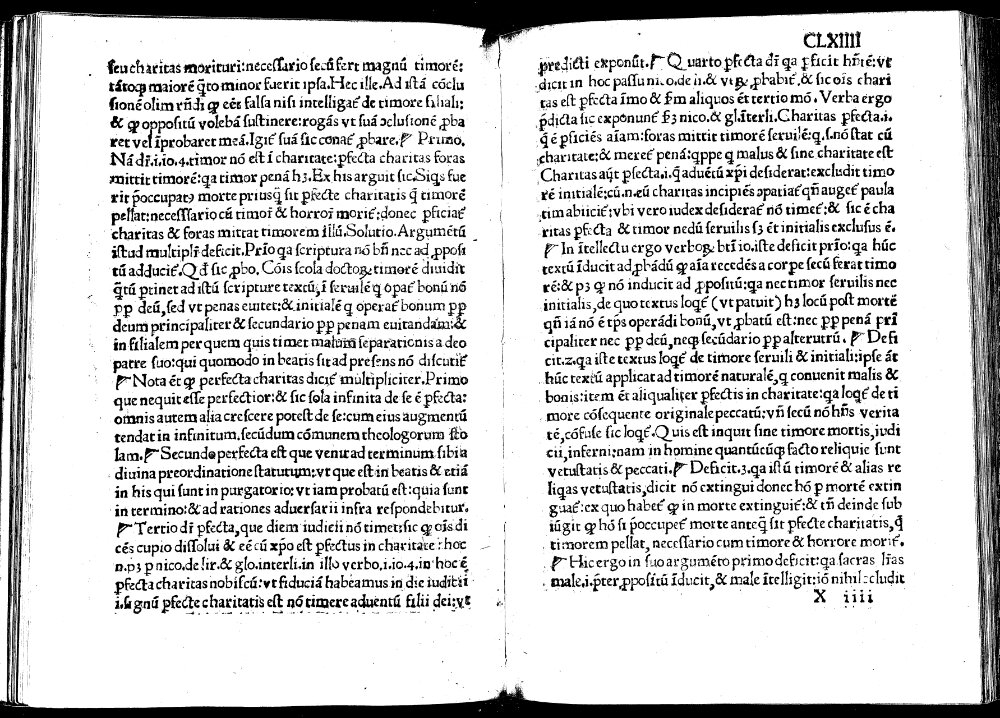 seu charitas morituri: necessario secũ fert magnũ timorẽ:
tãtoq̃ maiorẽ q̃to minor fuerit ipsa. Hec ille. Ad istã cõclu
sionẽ olim rñdi ꝙ eẽt falsa nisi intelligat̃ de timore filiali:
& ꝙ oppositũ volebã sustinere: rogãs vt suã ɔclusionẽ ꝓba
ret vel ĩprobaret meã. Igit̃ suã sic conat̃ ꝓbare. Primo.
Nã dr̃.i.io.4.timor nõ est ĩ charitate: ꝑfecta charitas foras
mittit timorẽ: qa timor penã hʒ. Ex his arguit sic. Siqs fue
rit p̃occupatꝰ morte priusq̃ sit ꝑfecte charitatis q̃ timorẽ
pellat: necessario cũ timor̃ & horror̃ moriet̃: donec ꝑficiat̃
charitas & foras mittat timorem illũ. Solutio. Argumẽtũ
istud multiplr̃ deficit. Prĩo qa scriptura nõ bñ nec ad ꝓposi
tũ adducit̃. Qd̃ sic ꝓbo. Cõis scola doctoꝝ timorẽ diuidit
q̃tũ ꝑtinet ad istũ scripture textũ, ĩ seruilẽ q̃ opat̃ bonũ nõ
ꝓp deũ, sed vt penas euitet: & initialẽ q̃ operat̃ bonum ꝓp
deum principaliter & secundario ꝓp penam euitandam: &
in filialem per quem quis timet malum separationis a deo
patre suo: qui quomodo in beatis sit ad presens nõ discutit̃
Nota ẽt ꝙ perfecta charitas dicit̃ multipliciter. Primo
que nequit esse perfectior: & sic sola infinita de se ẽ ꝑfecta:
omnis autem alia crescere potest de se: cum eius augmentũ
tendat in infinitum, secũdum cõmunem theologorum sco
lam. Secundo perfecta est que venit ad terminum sibi a
diuina preordinatione statutum: vt que est in beatis & etiã
in his qui sunt in purgatorio: vt iam probatũ est: quia sunt
in termino: & ad rationes aduersarii infra respondebitur.
Tertio dr̃ ꝑfecta, que diem iudicii nõ timet: sic ꝙ oĩs di
cẽs cupio dissolui & eẽ cũ xp̃o est ꝑfectus in charitate: hoc
n.pʒ ꝑ nico.de lir.& glo.interli.in illo verbo,i.io.4.in hoc ẽ
ꝑfecta charitas nobiscũ: vt fiduciã habeamus in die iuditii
i.signũ ꝑfecte charitatis est nõ timere aduentũ filii dei: vt
CLXIIII
predicti exponũt. Quarto ꝑfecta dr̃ qa ꝑficit hñtẽ: vt
dicit in hoc passu nico.de li.& vtꝝ ꝓbabit̃, & sic oĩs chari
tas est ꝑfecta ĩmo & ẽm aliquos ẽt tertio mõ. Verba ergo
p̃dicta sic exponunt̃ ẽʒ nico.& gl.ĩterli. Charitas ꝑfecta.i.
q̃ ẽ ꝑficiẽs aĩam: foras mittit timorẽ seruilẽ: q.s.nõ stat cũ
charitate: & meret̃ penã: qppe q malus & sine charitate est
Charitas aũt ꝑfecta.i.q aduẽtũ xp̃i desiderat: excludit timo
rẽ initialẽ: cũ.n.eũ charitas incipiẽs ɔpatiat̃ qñ auget̃ paula
tim abiicit̃: vbi vero iudex desiderat̃ nõ timet̃: & sic ẽ cha
ritas ꝑfecta & timor nedũ seruilis sʒ ẽt initialis exclusus ẽ.
In ĩtellectu ergo verboꝝ btĩ io.iste deficit prĩo: qa hũc
textũ ĩducit ad ꝓbãdũ ꝙ aĩa recedẽs a corpe secũ ferat timo
rẽ: & pʒ ꝙ nõ inducit ad ꝓpositũ: qa nec timor seruilis nec
initialis, de quo textus loqt̃ (vt patuit) hʒ locũ post mortẽ
qñ iã nõ ẽ tp̃s operãdi bonũ, vt ꝓbatũ est: nec ꝓp penã prĩ
cipaliter nec ꝓp deũ, neqʒ secũdario ꝓp alterutrũ. Defi
cit.2.qa iste textus loqt̃ de timore seruili & initiali: ipse ãt
hũc textũ applicat ad timorẽ naturalẽ, q̃ conuenit malis &
bonis: item ẽt aliqualiter ꝑfectis in charitate: qa loqt̃ de ti
more cõsequente originale peccatũ: vñ secũ nõ hñs verita
tẽ, cõfuse sic loqt̃. Quis est inquit sine timore mortis, iudi
cii, inferni: nam in homine quantũcũqʒ facto reliquie sunt
vetustatis & peccati. Deficit.3.qa istũ timorẽ & alias re
liqas vetustatis, dicit nõ extingui donec hõ ꝑ mortẽ extin
guat̃: ex quo habet̃ ꝙ in morte extinguit̃: & tñ deinde sub
iũgit ꝙ hõ si p̃occupet̃ morte anteq̃ sit ꝑfecte charitatis, q̃
timorem pellat, necessario cum timore & horrore morit̃.
Hic ergo in suo argumẽto primo deficit: qa sacras lr̃as
male.i.p̃ter ꝓpositũ ĩducit, & male ĩtelligit: iõ nihil ɔcludit
X iiii